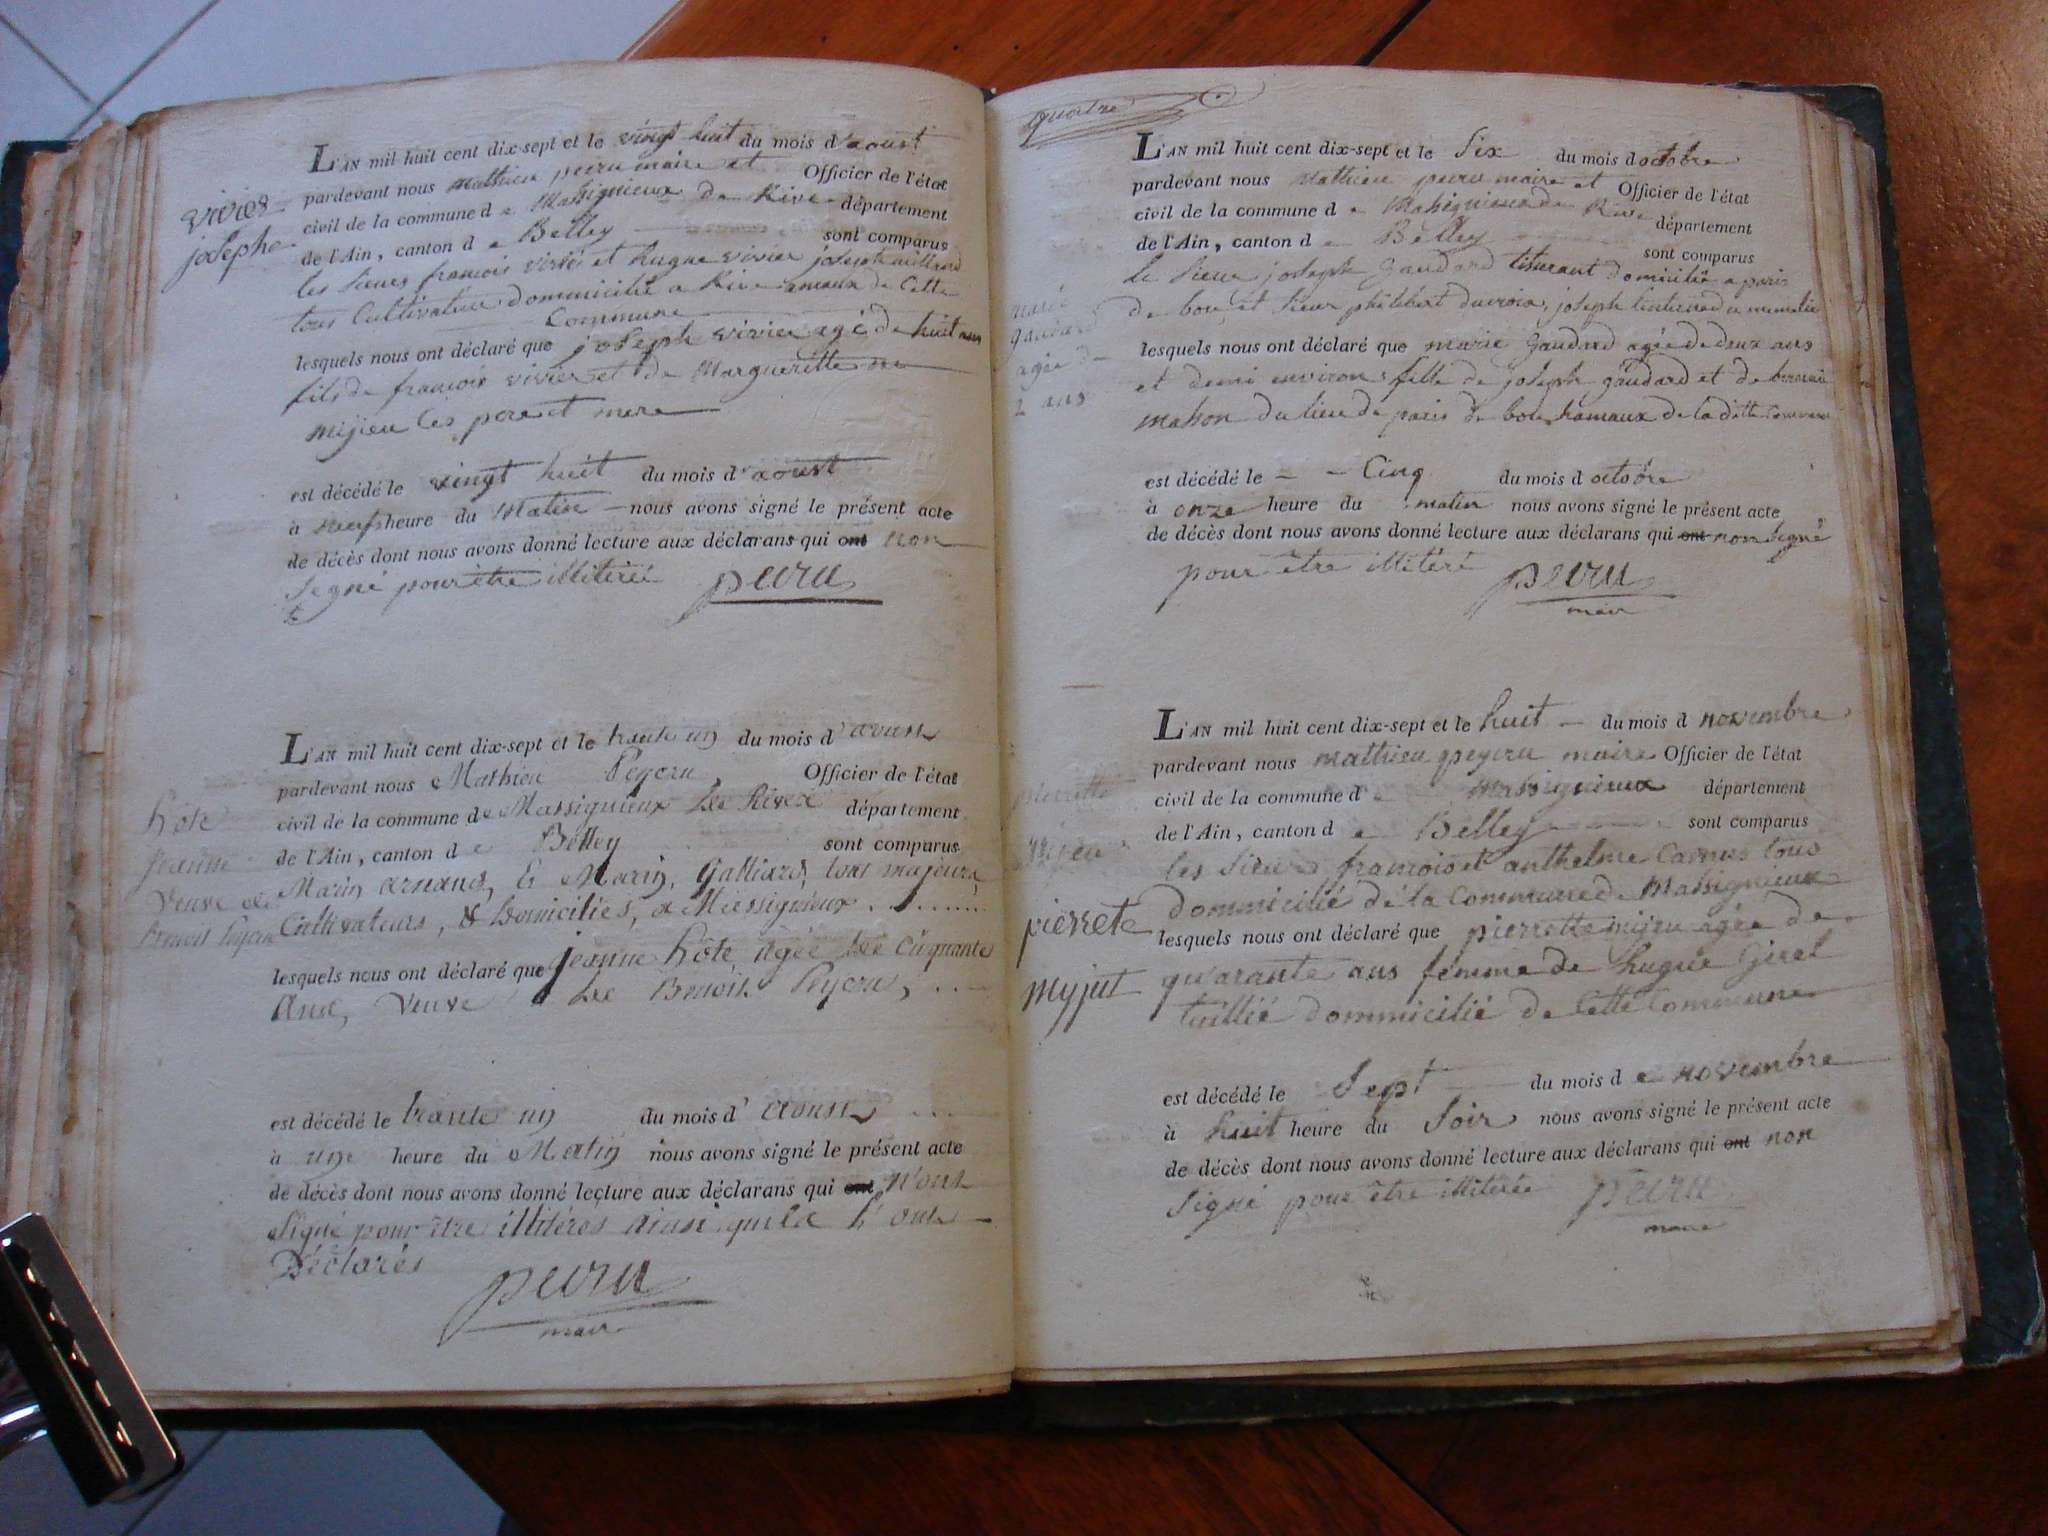 vivier
josephe
L'AN mil huit cent dix-sept et le vingt huit du mois d'aoust
pardevant nous mathieu peyru maire et Officier de l'état
civil de la commune d e Massignieux de Rive département
de l'Ain, canton d e Belley sont comparus
les sieurs françois vivié et hugue vivier joseph
tous Cultivateur domniicilié a Rive amaux de Cette
Commune
lesquels nous ont déclaré que joseph vivier agé de huit ans
fils de françois vivier et de Margueritte
mijieu Ces pere et mere
est décédé le vingt huit du mois d'aoust
à neuf heure du Matin nous avons signé le présent acte
de décès dont nous avons donné lecture aux déclarans qui ont non
Segné pour être illiterée peyru
hôte
jeanne
Veuve de
benoit peycru
L'AN mil huit cent dix-sept et le trante un du mois d'aoust
pardevant nous Mathieu Peycru, Officier de l'état
civil de la commune de Massignieux de Rivex département
de l'Ain, canton d e Belley sont comparus
Marin arnand, & Marin, Galliard, tous majeurs,
Cultivateurs, & Domiciliés, a Massignieux
lesquels nous ont déclaré que jeanne hôte agée de ciquante
Ans, Veuve de Benoit Peycru,
est décédé le trante un du mois d'aoust
à une heure du Matin nous avons signé le présent acte
de décès dont nous avons donné lecture aux déclarans qui ont n'ont
Signé pour être illitérés ainsi qu'ils l'ont
Déclarés
peyru
mair
quatre
marie
gaudard
agée de
2 ans
L'AN mil huit cent dix-sept et le Six du mois d octobre
pardevant nous Mathieu peyru maire et Officier de l'état
civil de la commune d e Massignieux de Rive département
de l'Ain, canton d e Belley sont comparus
le Sieur joseph gaudard tisserant domicilié a paris
de bou, et Sieur philibert ducroix, joseph
lesquels nous ont déclaré que marie gaudard agée de deux ans
et demi environ fille de joseph gaudard et de
mahon du lieu de paris de bou hamaux de la ditte Commune
est décédé le Cinq du mois d octobre
à onze heure du matin nous avons signé le présent acte
de décès dont nous avons donné lecture aux déclarans qui ont non Segné
pour être illitéré peyru
mair
pierrette
mijeu
pierrete
myjut
L'AN mil huit cent dix-sept et le huit du mois d novembre
pardevant nous mathieu peycru maire Officier de l'état
civil de la commune d e Massignieux département
de l'Ain, canton d e Belley sont comparus
les Sieurs françois et anthelme Camus tous
dommicilié de la Commune de Massignieux
lesquels nous ont déclaré que pierrette mijeu agée de
quarante ans femme de hugue Girel
tuillié dommicilié de Cette Commune
est décédé le Sept du mois d e novembre
à huit heure du Soir nous avons signé le présent acte
de décès dont nous avons donné lecture aux déclarans qui ont non
Signé pour être illiterée peyru
maire